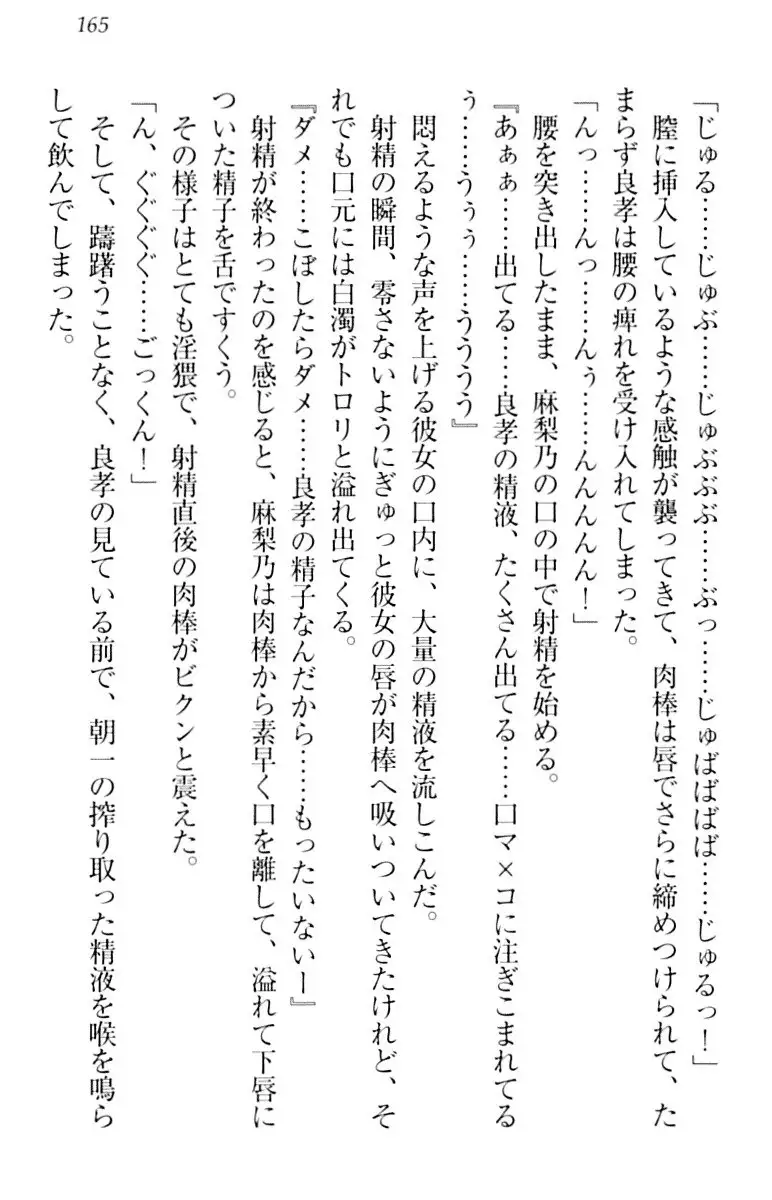 165
「じゅる……じゅぶ……じゅぶぶぶ……ぶっ……じゅばばばば……じゅるっ！」
　膣に挿入しているような感触が襲ってきて、肉棒は唇でさらに締めつけられて、た
まらず良孝は腰の痺れを受け入れてしまった。
「んっ……んっ……んぅ……んんんんん！」
　腰を突き出したまま、麻梨乃の口の中で射精を始める。
『あぁぁ……出てる……良孝の精液、たくさん出てる……口マ×コに注ぎこまれてる
ぅ……うぅぅ……うううう』
　悶えるような声を上げる彼女の口内に、大量の精液を流しこんだ。
　射精の瞬間、零さないようにぎゅっと彼女の唇が肉棒へ吸いついてきたけれど、そ
れでも口元には白濁がトロリと溢れ出てくる。
『ダメ……こぼしたらダメ……良孝の精子なんだから……もったいないー』
　射精が終わったのを感じると、麻梨乃は肉棒から素早く口を離して、溢れて下唇に
ついた精子を舌ですくう。
　その様子はとても淫猥で、射精直後の肉棒がビクンと震えた。
「ん、ぐぐぐぐ……ごっくん！」
　そして、躊躇うことなく、良孝の見ている前で、朝一の搾り取った精液を喉を鳴ら
して飲んでしまった。